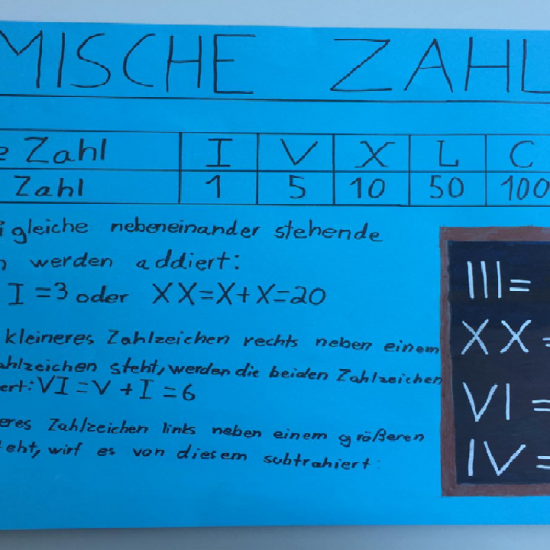 MISCHE ZAHL
e Zahl I V X L C
Zahl 1 5 10 50 100
i gleiche nebeneinander stehende
n werden addiert:
I =3 oder XX=X+X=20
kleineres Zahlzeichen rechts neben einem
ahlzeichen steht, werden die beiden Zahlzeichen
ert: VI=V+I=6
eres Zahlzeichen links neben einem größeren
teht, wirf es von diesem subtrahiert:
III=
XX=
VI=
IV=